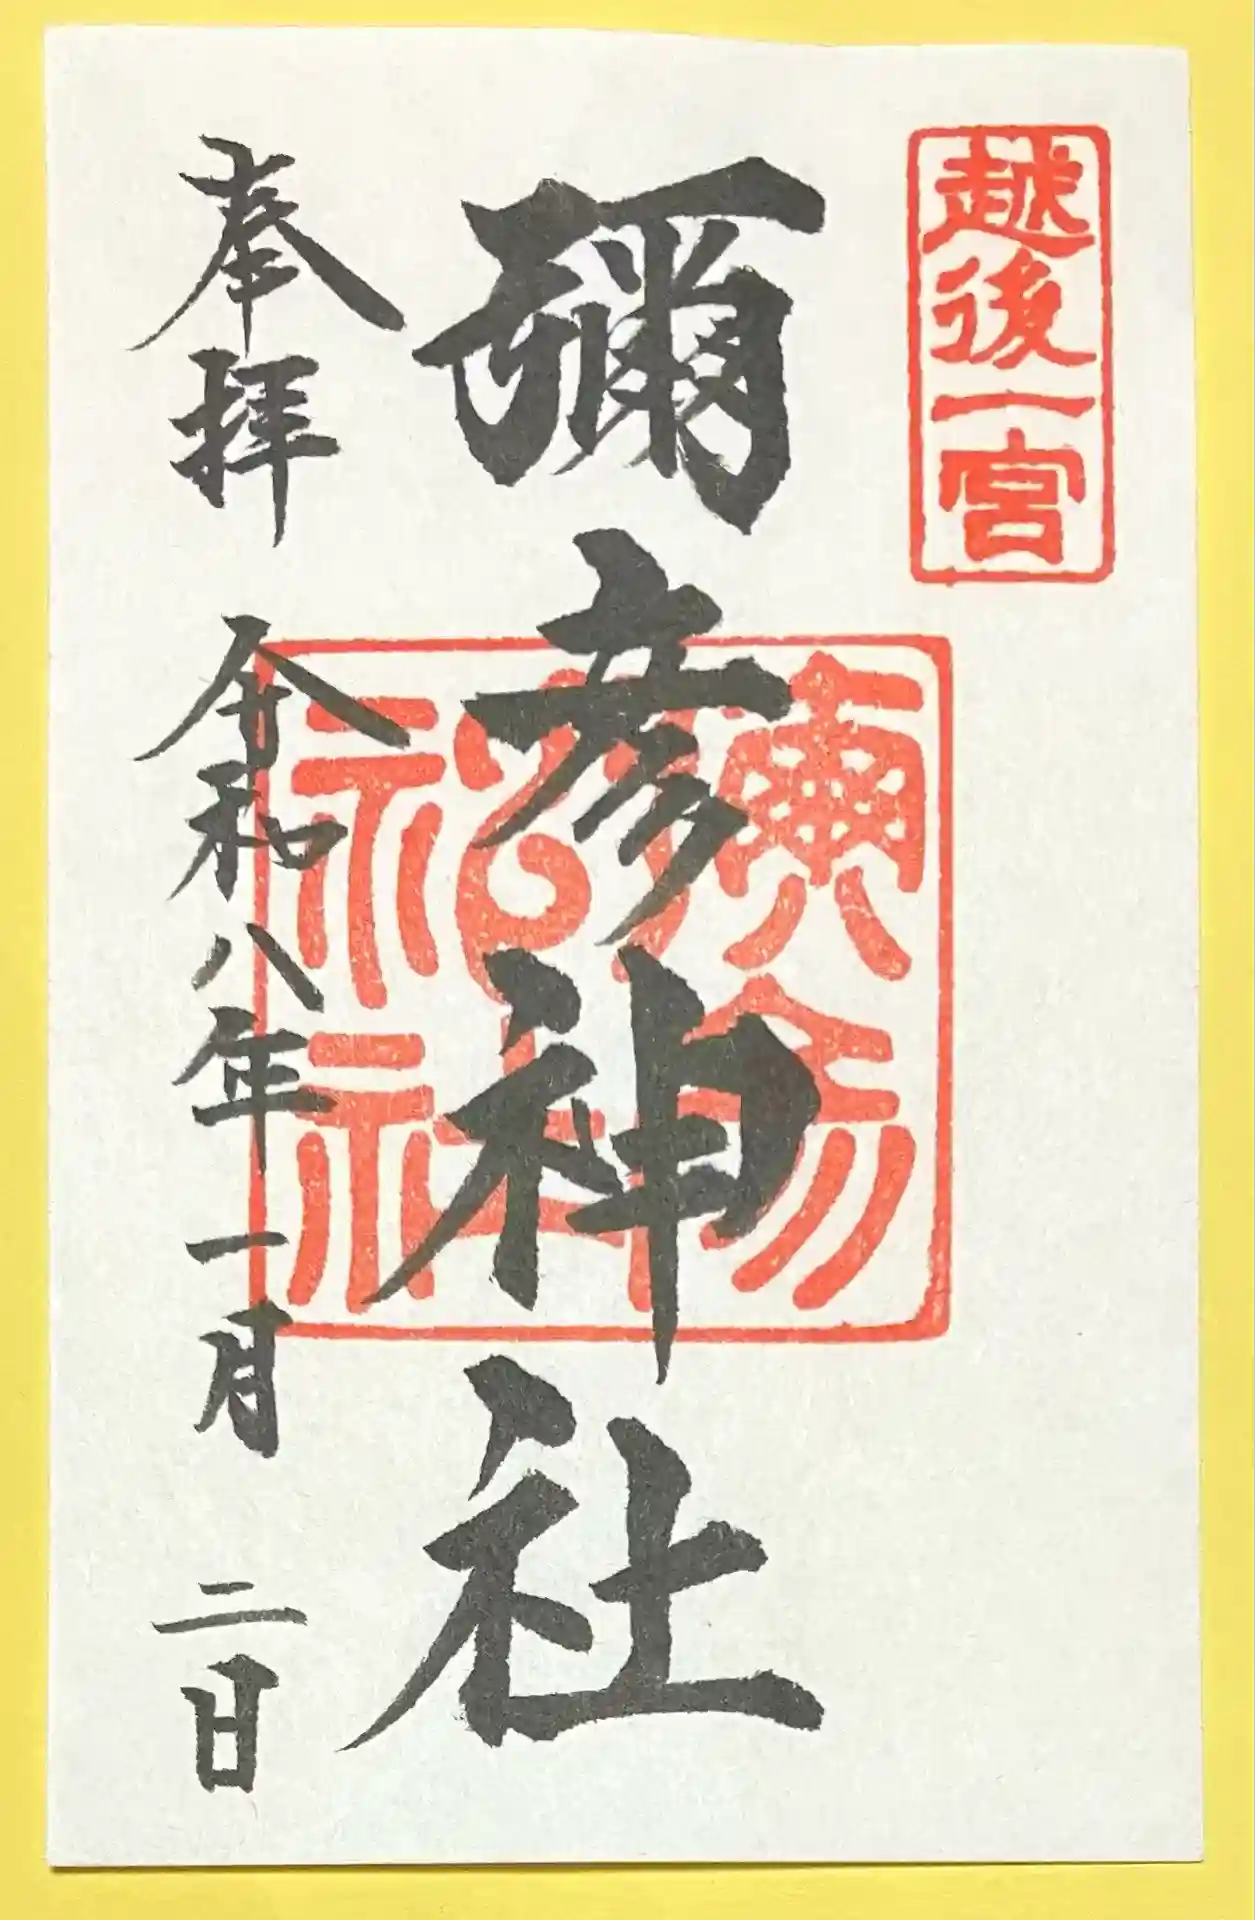 越後一宮
彌彦神社
奉拝
令和八年一月二日